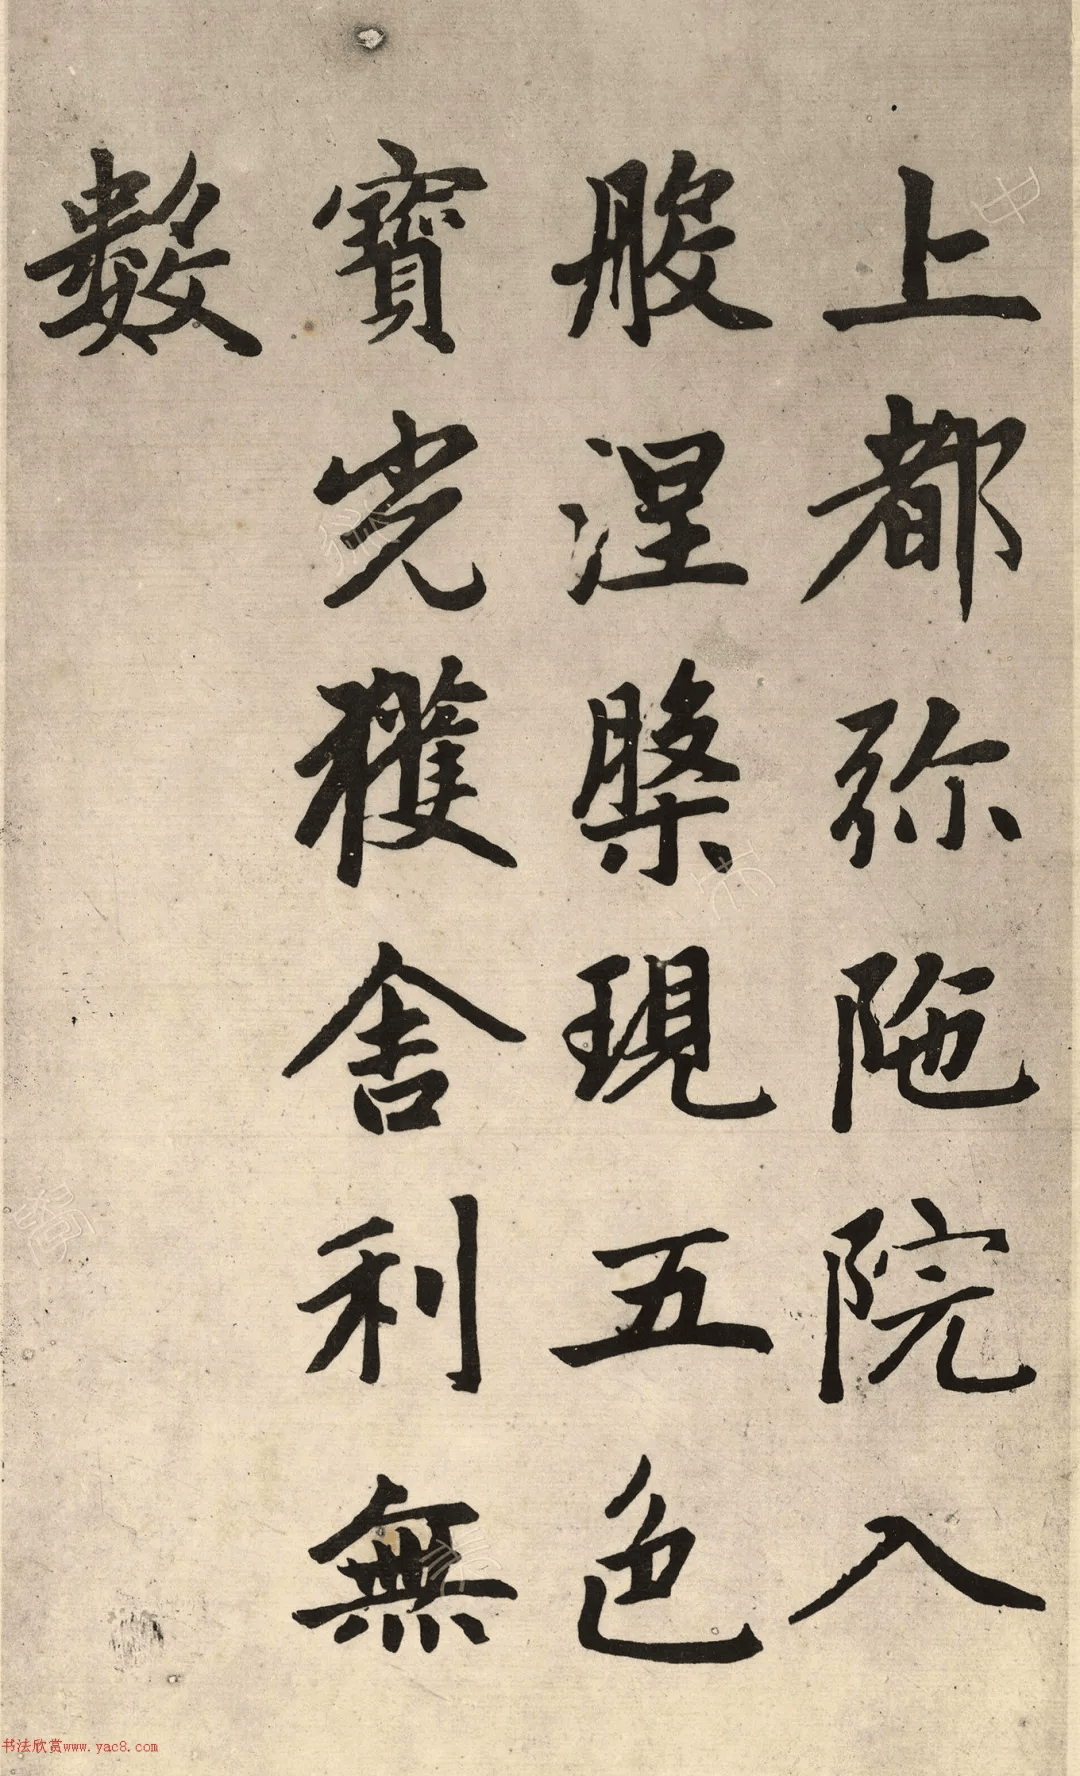 上都弥陁院入
般涅槃現五色
寶光獲舎利無
數
书法欣赏www.yac8.com